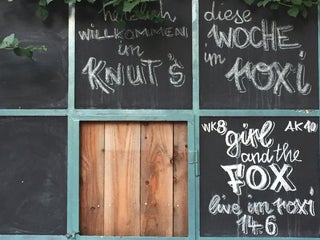 herzlich
WILLKOMMEN
im
KNUT'S
diese
WOCHE
im
roxi
WK8 AK10
girl
and the
FOX
live im roxi
14.6